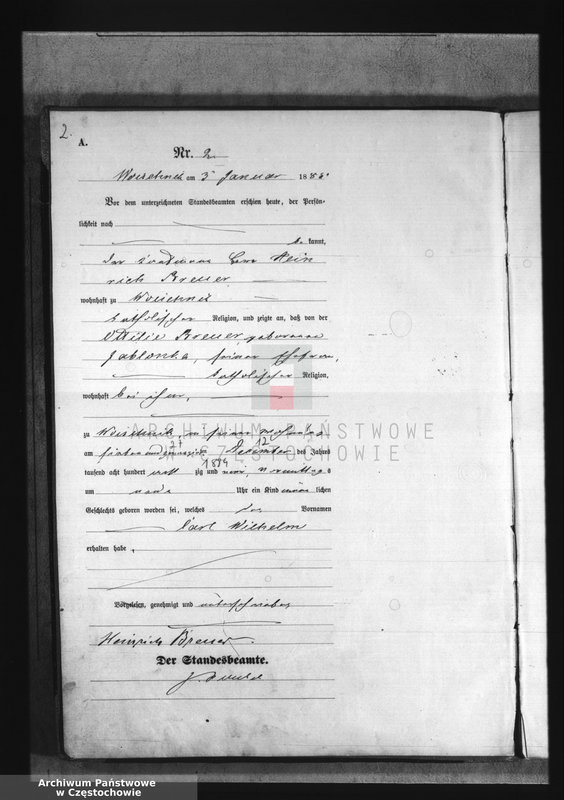 2.
A.
Nr. 2
Woischnik am 3 Januar 1880
Vor dem unterzeichneten Standesbeamten erschien heute, der Persön-
lichkeit nach
be kannt,
der Herr Hein
rich Breuer
wohnhaft zu Woischnik
katholischer Religion, und zeigte an, daß von der
Ottilie Breuer, geborenen
Jablonka, seiner Ehefrau,
katholischer Religion,
wohnhaft bei ihm,
zu Woischnik, in seiner Wohnung
27 12
am sieben und zwanzigsten Dezember des Jahres
1879
tausend acht hundert zig und neun, Vormittags
um Uhr ein Kind männ lichen
Geschlechts geboren worden sei, welches Vornamen
Carl Wilhelm
erhalten habe,
Vorgelesen, genehmigt und unterschrieben
Heinrich Breuer.
Der Standesbeamte.
ARCHIWUM PAŃSTWOWE
W CZĘSTOCHOWIE
Archiwum Państwowe
w Częstochowie